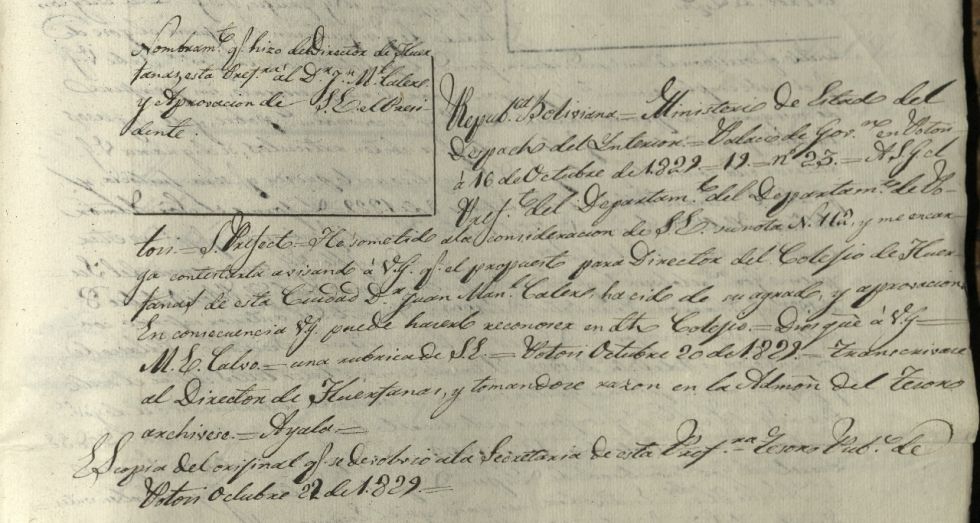 Nombram.to q.e hizo del Director de Huer
fanas esta Pref.ra al D.r J.n M.l Calero
y Aprovacion de S.E. el Presi
dente.
Repub.ca Boliviana = Ministerio de Estado del
Despacho del Interior = Palacio de Gov.no en Potosi
á 16 de Octubre de 1829 = 19 = n.o 23. = A S.G. el
Pref.to del Departam.to del Departam.to de Po
tosi = S. Prefecto = He sometido ala consideracion de S.E. su nota N. 112, y me encar
ga contestarla avisando á V.G. q.e el propuesto para Director del Colejio de Huer
fanas de esta Ciudad D.r Juan Man.l Calero ha cido de su agrado, y aprovacion
En consecuencia V.G. puede hacerlo reconoser en dho Colejio. = Dios gue á V.G. =
M. E. Calvo. = una rubrica de S.E. = Potosi Octubre 20 de 1829. = Transcrivase
al Director de Huerfanas, y tomandose razon en la Admon del Tesoro
archivese. = Ayala =
Es copia del orijinal q.e se debolvio ala Secretaria de esta Pref.ra = Tesoro Pub.co de
Potosi Octubre 22 de 1829. =